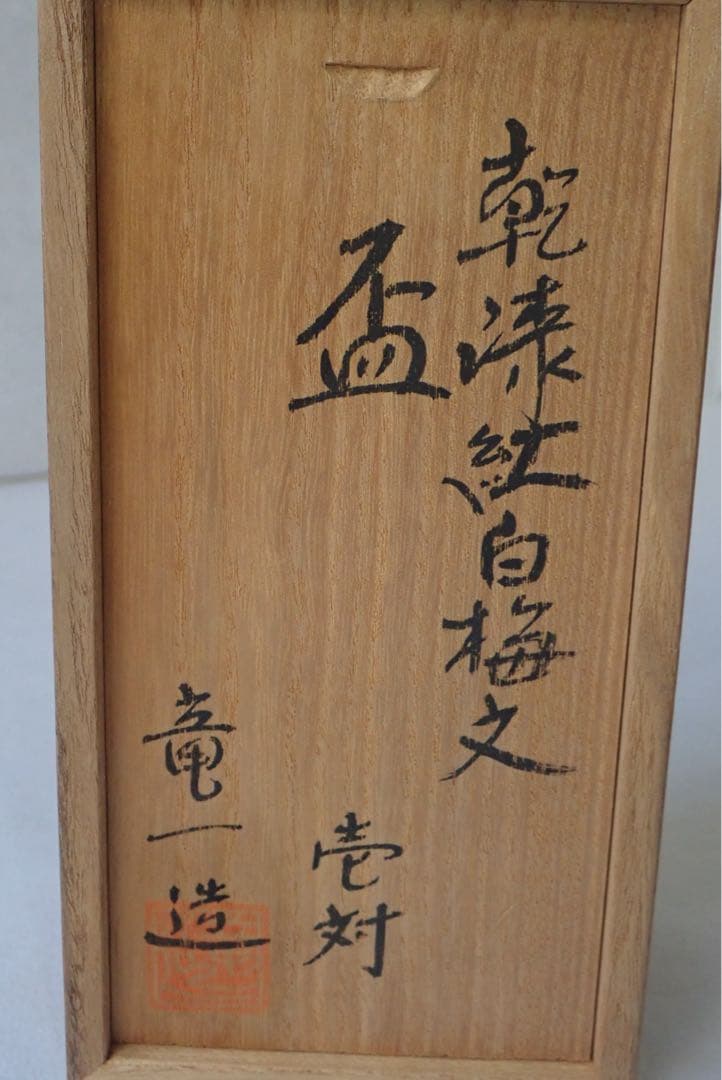 乾漆紅白梅文
盃
壱対
竜一造